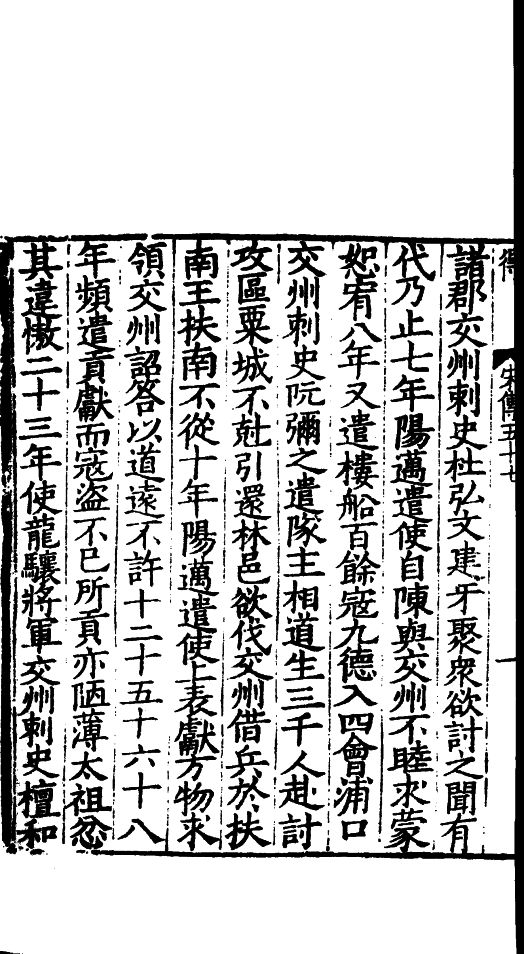 宋傳五十七
一
諸郡交州刺史杜弘文建牙聚衆欲討之聞有
代乃止七年陽邁遣使自陳與交州不睦求蒙
恕宥八年又遣樓船百餘寇九德入四會浦口
交州刺史阮彌之遣隊主相道生三千人赴討
攻區粟城不尅引還林邑欲伐交州借兵於扶
南王扶南不從十年陽邁遣使上表獻方物求
領交州詔答以道遠不許十二十五十六十八
年頻遣貢獻而寇盜不已所貢亦陋薄太祖忿
其違慠二十三年使龍驤將軍交州刺史檀和